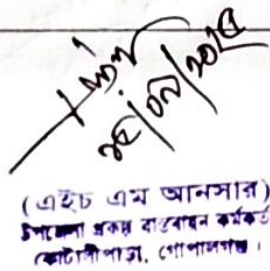 ২৫/০৯/২০২৫
(এইচ এম আনসার)
উপজেলা প্রকল্প বাস্তবায়ন কর্মকর্তা
কোটালীপাড়া, গোপালগঞ্জ।